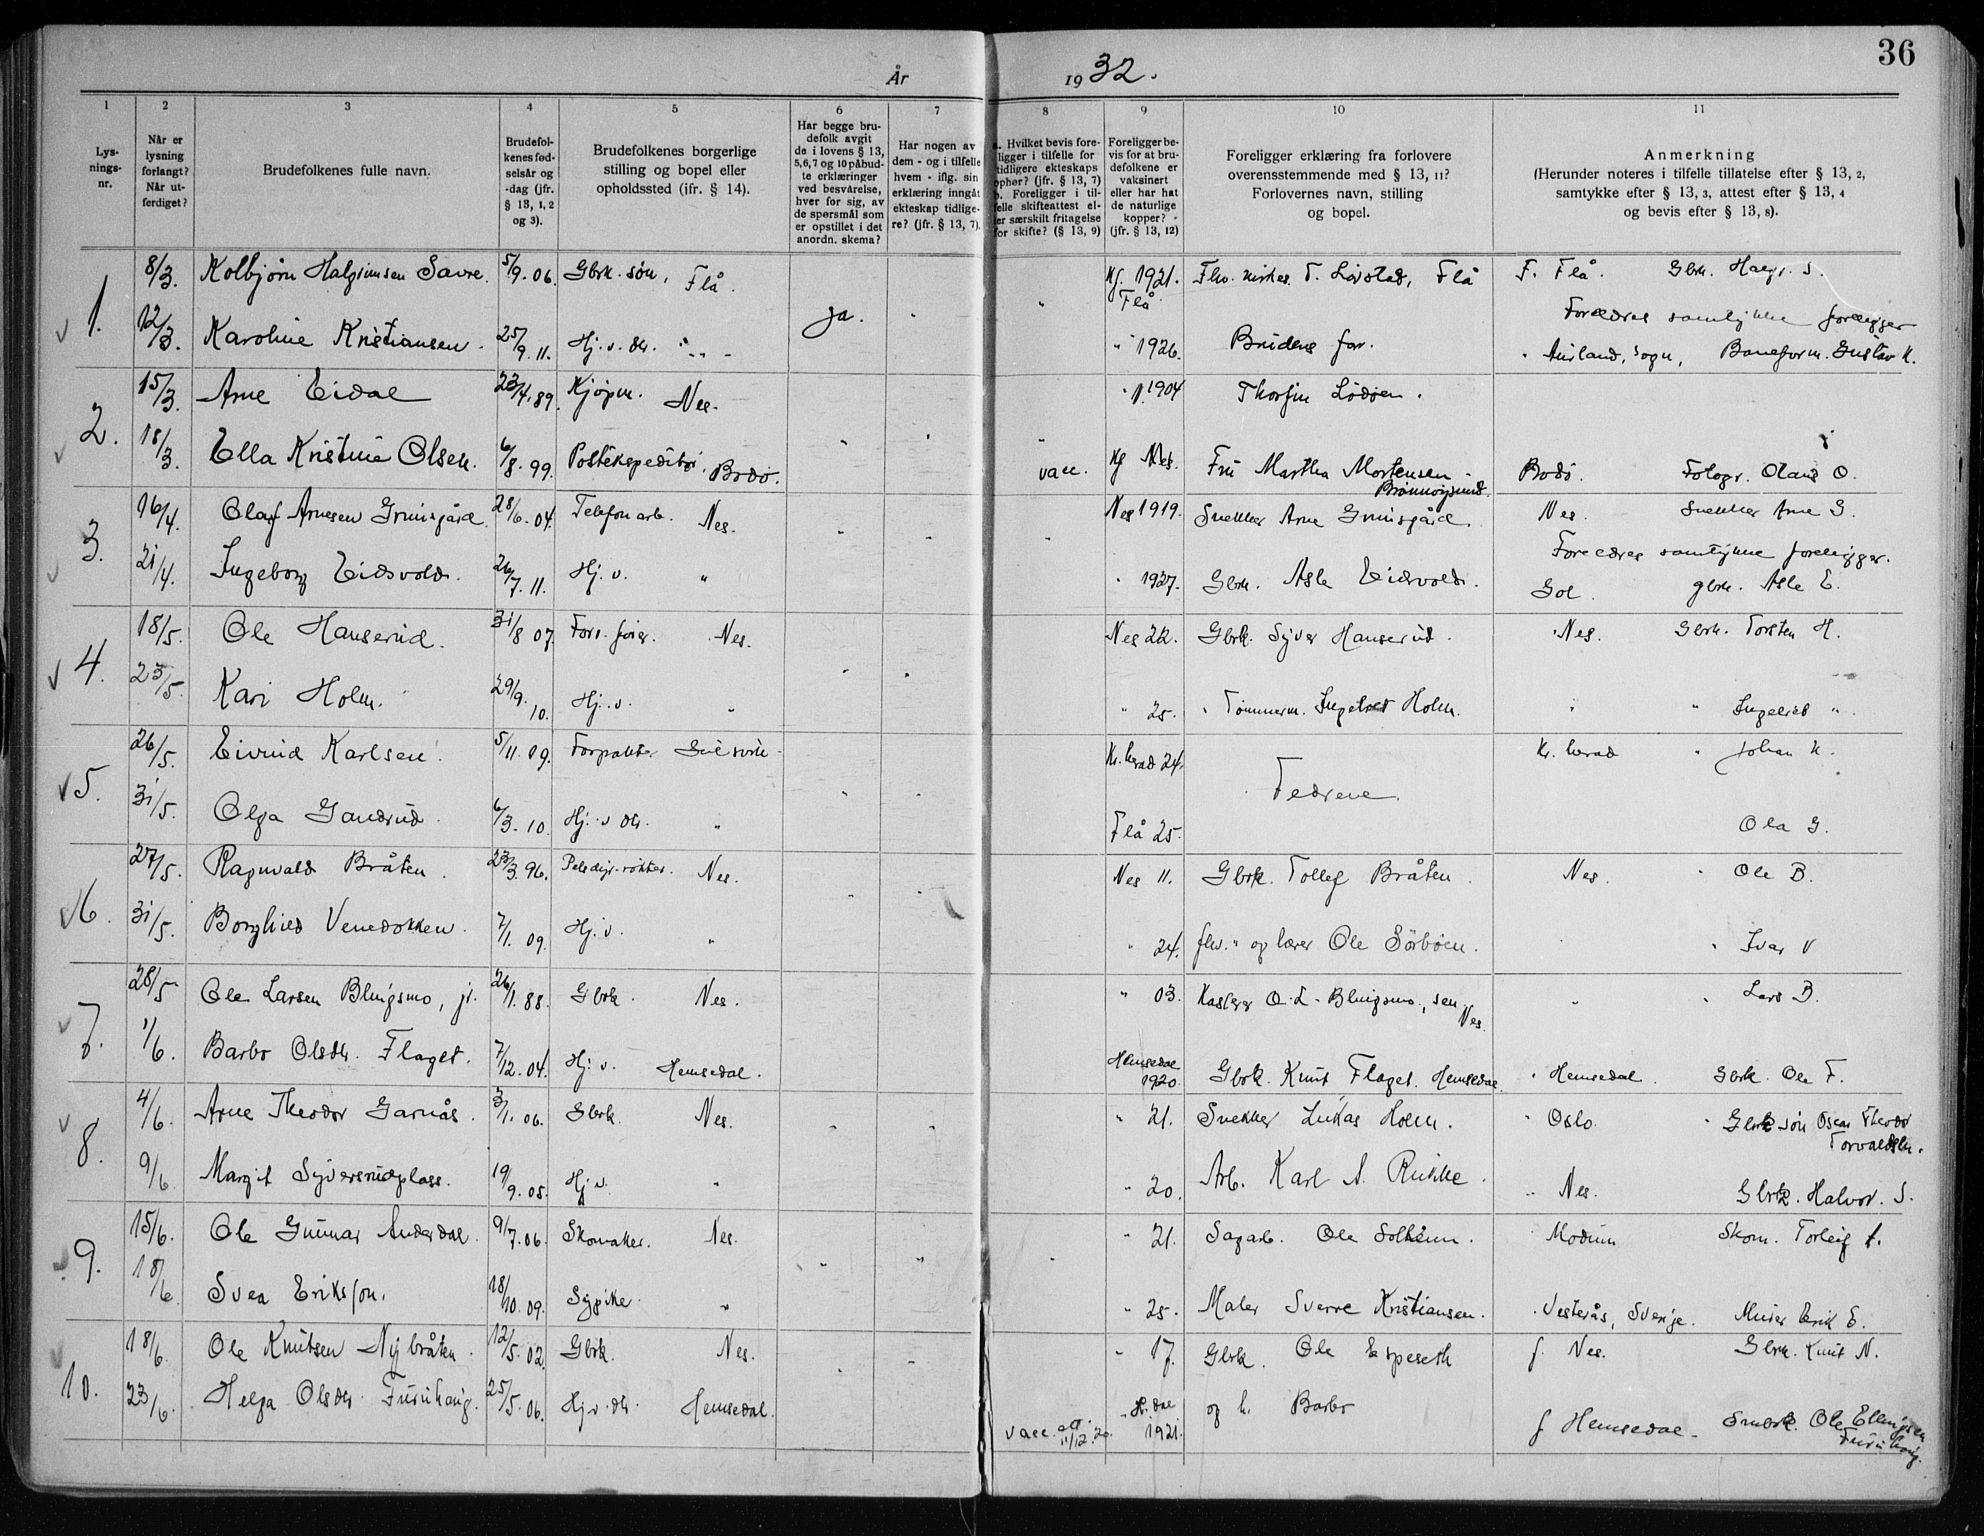 36
År 1932.
1 2 3 4 5 6 7 8 9 10 11
Lys-
nings-
nr.
Når er
lysning
forlangt?
Når ut-
ferdiget?
Brudefolkenes fulle navn.
Brudefol-
kenes fød-
selsår og
-dag (jfr.
§ 13, 1, 2
og 3).
Brudefolkenes borgerlige
stilling og bopel eller
opholdssted (jfr. § 14).
Har begge bru-
defolk avgit
de i lovens § 13,
5,6,7 og 10 påbud-
te erklæringer
ved besvarelse,
hver for sig, av
de spørsmål som
er opstillet i det
anordn. skema?
Har nogen av
dem - og i tilfelle
hvem - iflg. sin
erklæring inngått
ekteskap tidlige-
re? (jfr. § 13, 7).
a. Hvilket bevis fore-
ligger i tilfelle for
tidligere ekteskaps
ophør? (jfr. § 13, 7)
b. Foreligger i til-
felle skifteattest el-
ler særskilt fritagelse
for skifte? (§ 13, 9)
Foreligger be-
vis for at bru-
defolkene er
vaksinert
eller har hat
de naturlige
kopper? -
(jfr. § 13, 12)
Foreligger erklæring fra forlovere
overensstemmende med § 13, 11?
Forlovernes navn, stilling
og bopel.
Anmerkning
(Herunder noteres i tilfelle tillatelse efter § 13, 2,
samtykke efter § 13, 3, attest efter § 13, 4
og bevis efter § 13, 8).
1. 8/3. Kolbjørn Halgrimsen Savre. 5/9. 06. Gbrk. søn, Flå. Kf. 1921. Flå. Fhv. kirkes. T. Løvstad, Flå F. Flå. Gbrk. Halgr. S.
ja.
Foreldres samtykke foreligger
12/3. Karoline Kristiansen. 25/9. 11. Hj. v. dtr. " " 1926. Brudens far. " Aurland, Sogn, Baneform. Gustav K.
2. 15/3. Arne Eidal 23/4. 89. Kjøpm. Nes. " 1904 Thorfin Lødøen.
18/3. Ella Kristine Olsen. 6/8. 99. Postekspeditør, Bodø. vacc. Kf Nes. Fru Martha Mortensen Brønnøysund. Bodø. Fotogr. Olaus O.
3. 16/4. Olaf Arnesen Grimsgård 28/6. 04. Telefonarb. Nes. Nes 1919. Snekker Arne Grimsgård. Nes. Snekker Arne G.
Foreldres samtykke foreligger.
21/4. Ingeborg Eidsvold. 26/7. 11. Hj. v. " " 1927. Gbrk. Asle Eidsvold. Gol. gbrk. Asle E.
4. 18/5. Ole Hanserud. 31/8 07. Nes. Nes 22. Gbrk. Syver Hanserud. Nes. Gbrk. Torsten H.
23/5. Kari Holm. 29/9. 10. Hj. v. " " 25. " Tømmerm. Ingebret Holm. " " Ingebret "
5. 26/5. Eivind Karlsen. 5/11. 09. Forpakter Gulsvik Kr. herad 24. Kr. herad " Johan K.
Fedrene.
31/5. Olga Gandrud. 6/3. 10. Hj. v. dtr. " Flå 25. Ola G.
6. 27/5. Ragnvald Bråten. 23/3. 96. Pelsdyr-røkter. Nes. Nes 11. Gbrk. Tollef Bråten. Nes. " Ole B.
31/5. Borghild Venedokken. 7/1. 09. Hj. v. " " 24. fhv. " og lærer Ole Sørbøen. " " Ivar V
7. 28/5 Ole Larsen Blingsmo, jr. 26/1. 88. Gbrk. Nes. " 03. Kasserer O. L. Blingsmo, sen. Nes. " " Lars B.
1/6. Barbo Olsdtr. Flaget. 7/12. 04. Hj. v. Hemsedal. Hemsedal 1920. Gbrk. Knut Flaget. Hemsedal. " Hemsedal. Gbrk. Ole F.
8. 4/6. Arne Theodor Garnås. 3/1. 06. Gbrk. Nes. " 21. Snekker Lukas Holm. " Oslo. " Gbrk søn Oscar Theodor Torvaldsen.
9/6 Margit Syversrudplass. 19/9. 05. Hj. v. " " 20. Arb. Karl A. Rukke. " Nes. Gbrk. Halvor. S.
9. 15/6. Ole Gunnar Anderdal. 9/7. 06. Skomaker. Nes. " 21. Sagarb. Ole Solheim. " Modum Skom. Torleif A.
18/6 Svea Eriksson. 18/10. 09. Sypike. " " 25. Maler Sverre Kristiansen. " Vesterås, Sverige. Murer Erik E.
10. 18/6. Ole Knutsen Nybråten. 12/5. 02. Gbrk. Nes. " 17. Gbrk. Ole Espeseth f. Nes. Gbrk. Knut N.
23/6. Helga Olsdtr. Furuhaug. 25/5. 06. Hj. v. dtr. Hemsedal. vacc. att. 11/12. 20. " H. dal 1921. og h. Barbo f Hemsedal. Småbrk. Ole Ellingsen Furuhaug.